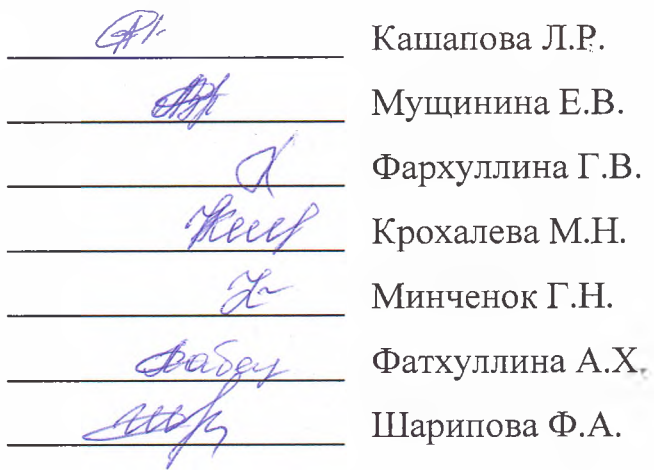 Кашапова Л.Р.
Мущинина Е.В.
Фархуллина Г.В.
Крохалева М.Н.
Минченок Г.Н.
Фатхуллина А.Х.
Шарипова Ф.А.